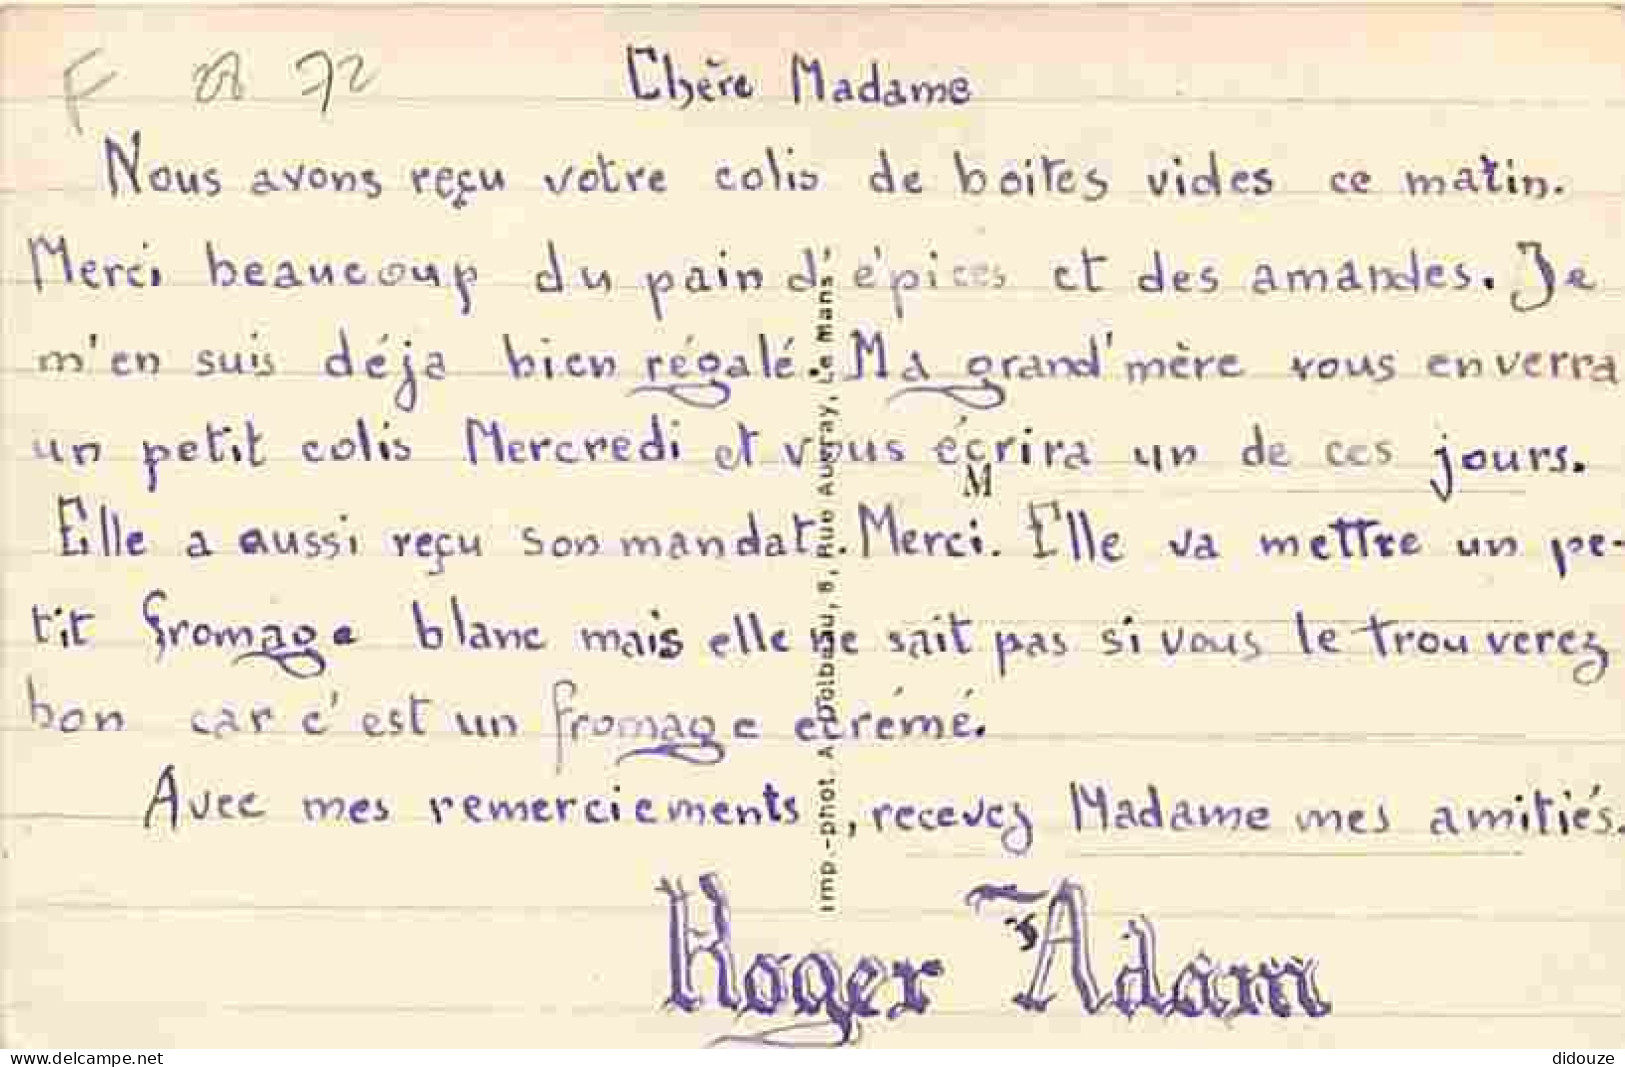 F 72
Chère Madame
Nous avons reçu votre colis de boites vides ce matin.
Merci beaucoup du pain d'épices et des amandes. Je
m'en suis déja bien régalé. Ma grand'mère vous enverra
un petit colis Mercredi et vous écrira un de ces jours.
M
Elle a aussi reçu son mandat. Merci. Elle va mettre un pe-
tit fromage blanc mais elle ne sait pas si vous le trouverez
bon car c'est un fromage écrémé.
Avec mes remerciements, recevez Madame mes amitiés.
Roger Adam
Imp.-phot. A. Dolbeau, 8, Rue Auvray, Le Mans
www.delcampe.net
didouze